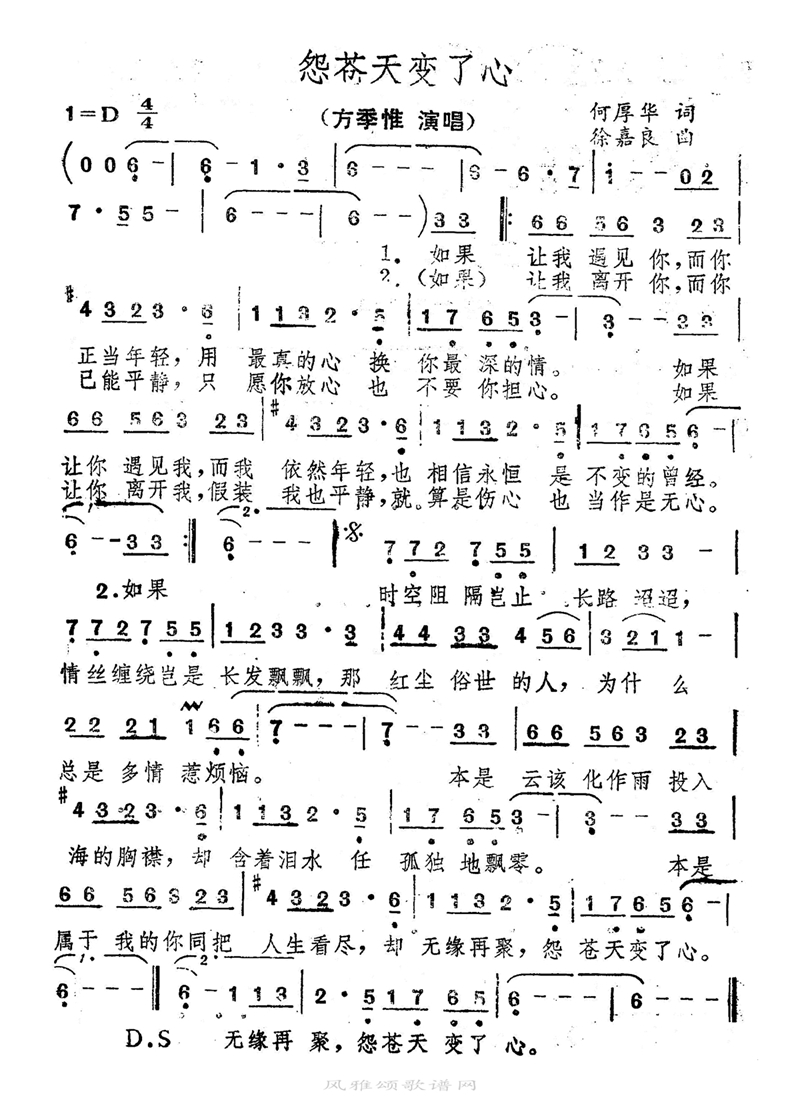 怨苍天变了心
1=D 4/4
(方季惟 演唱)
何厚华 词
徐嘉良 曲
(0 0 6 - | 6 - 1 · 3 | 6 - - - | 6 - 6 · 7 | 1 - - 0 2 |
7 · 5 5 - | 6 - - - | 6 - - ) 3 3 ‖: 6 6 5 6 3 2 3 |
1. 如果 让我 遇见 你,而你
2. (如果) 让我 离开 你,而你
#4 3 2 3 · 6 | 1 1 3 2 · 5 | 1 7 6 5 3 - | 3 - - 3 3 |
正当年轻, 用 最真的心 换 你最 深的情。 如果
已能平静, 只 愿你放心 也 不要 你担心。 如果
6 6 5 6 3 2 3 | #4 3 2 3 · 6 | 1 1 3 2 · 5 | 1 7 6 5 6 - |
让你 遇见我,而我 依然年轻,也 相信永恒 是 不变的曾经。
让你 离开我,假装 我也平静,就。算是伤心 也 当作是无心。
1. 2.
6 - - 3 3 :‖ 6 - - - ‖ 𝄋 7 7 2 7 5 5 | 1 2 3 3 - |
2.如果 时空阻 隔岂止 长路 迢迢,
7 7 2 7 5 5 | 1 2 3 3 · 3 | 4 4 3 3 4 5 6 | 3 2 1 1 - |
情丝缠绕岂是 长发飘飘, 那 红尘 俗世 的人, 为什 么
2 2 2 1 1 6 6 | 7 - - - | 7 - - 3 3 | 6 6 5 6 3 2 3 |
总是 多情 惹烦恼。 本是 云该 化作雨 投入
#4 3 2 3 · 6 | 1 1 3 2 · 5 | 1 7 6 5 3 - | 3 - - 3 3 |
海的胸襟, 却 含着泪水 任 孤独 地飘零。 本是
6 6 5 6 3 2 3 | #4 3 2 3 · 6 | 1 1 3 2 · 5 | 1 7 6 5 6 - |
属于 我的你同把 人生看尽, 却 无缘再聚, 怨 苍天变了心。
1. 2.
6 - - - ‖ 6 - 1 1 3 | 2 · 5 1 7 6 5 | 6 - - - | 6 - - - ‖
D.S 无缘再 聚, 怨苍天 变了 心。
风雅颂歌谱网